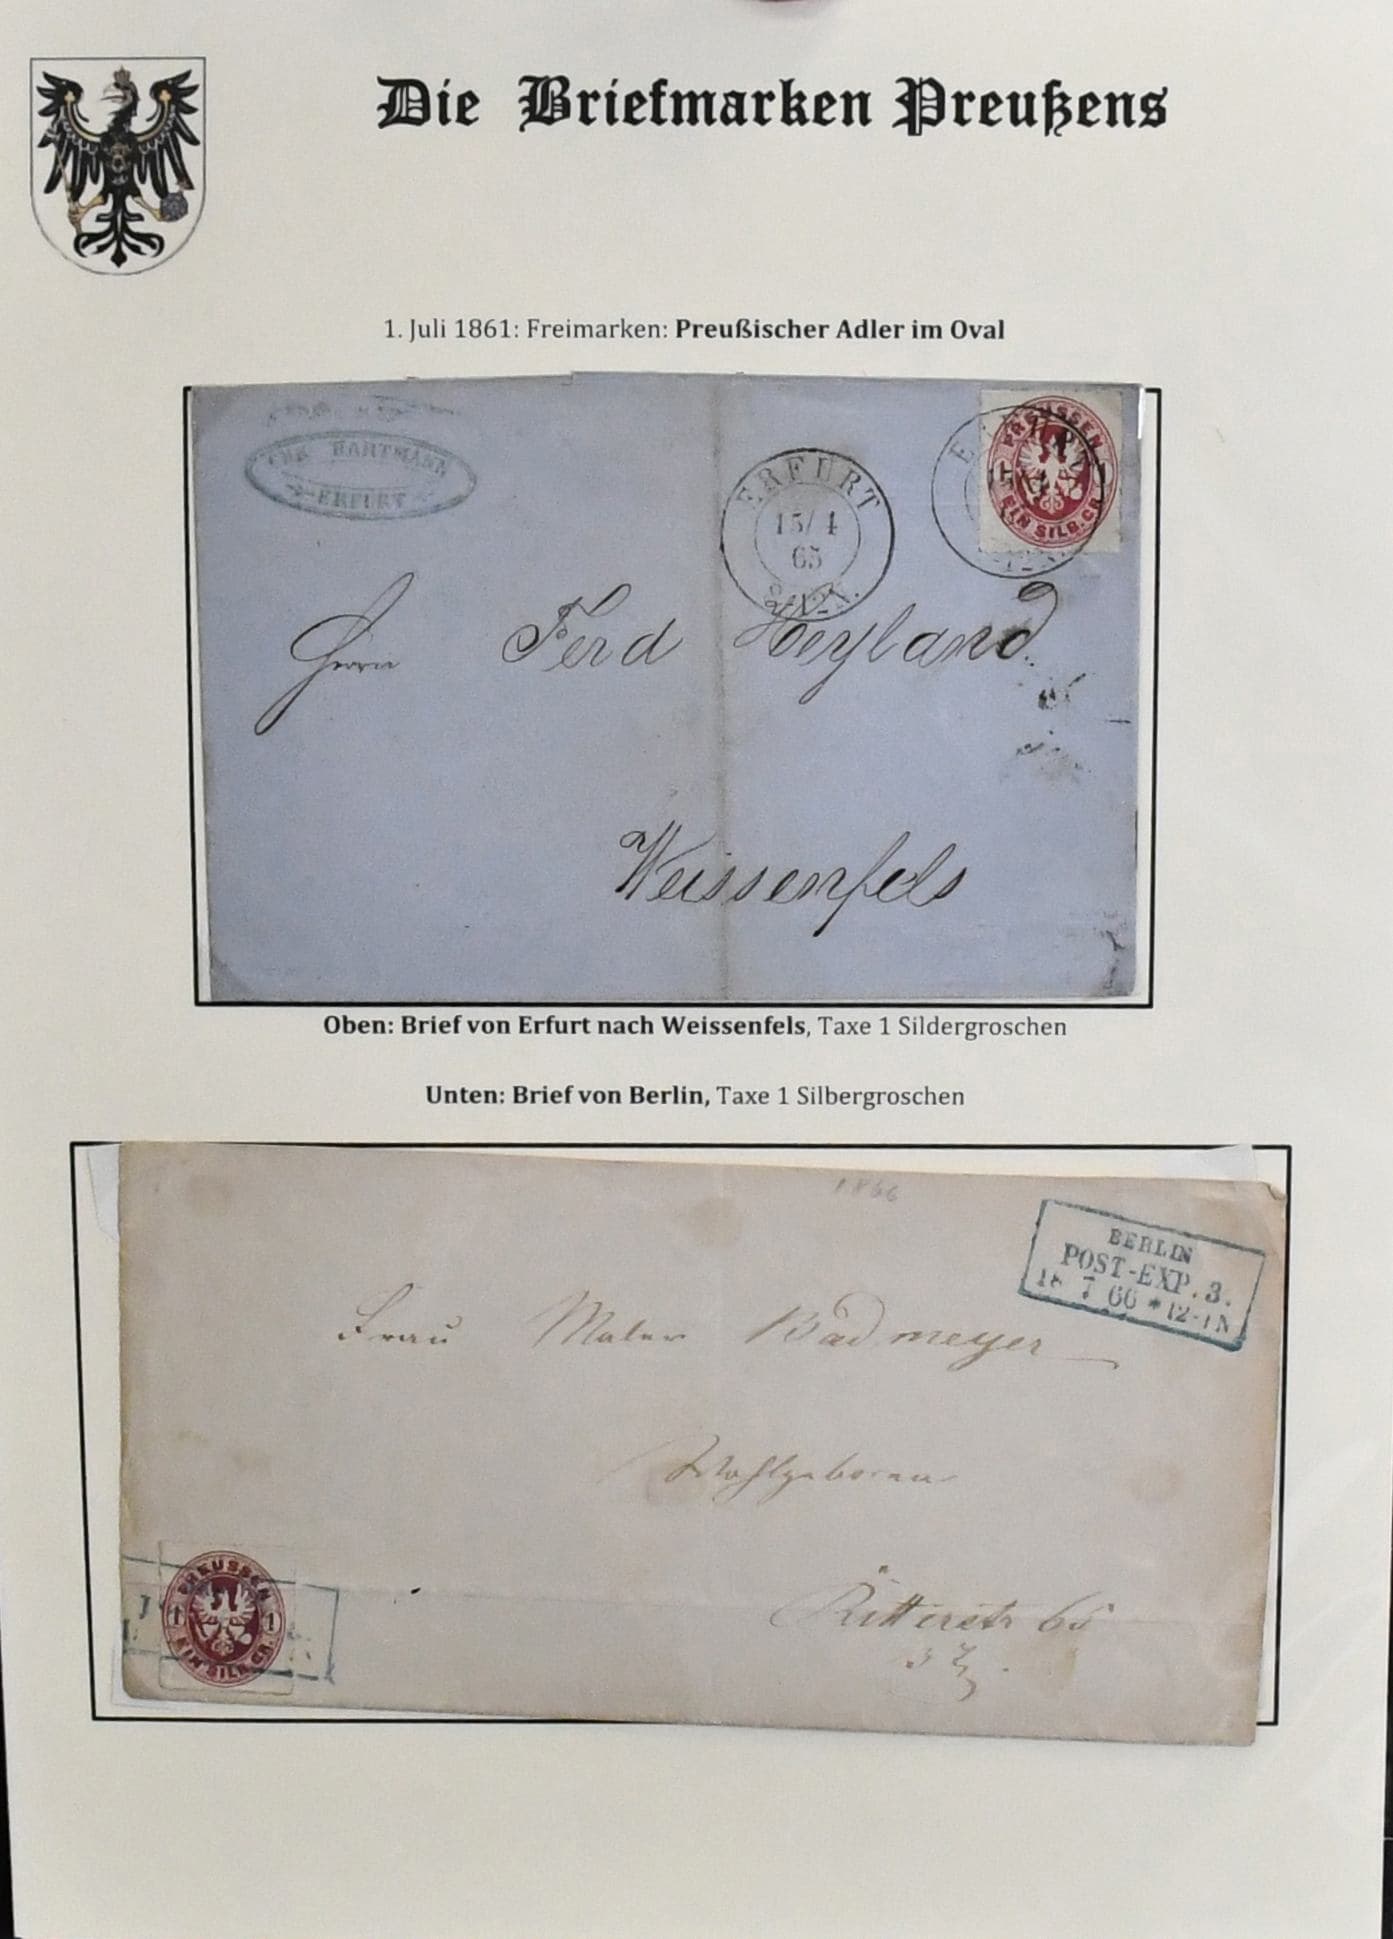 Die Briefmarken Preußens
1. Juli 1861: Freimarken: Preußischer Adler im Oval
HARTMANN
ERFURT
ERFURT
15/4
65
PREUSSEN
1
EIN SILB. GR.
Herrn Ferd Heyland
Weissenfels
Oben: Brief von Erfurt nach Weissenfels, Taxe 1 Sildergroschen
Unten: Brief von Berlin, Taxe 1 Silbergroschen
1866
BERLIN
POST-EXP. 3.
18 7 66 * 12-1N
Frau Maler Badmeyer
Wohlgeboren
Ritterstr 65
PREUSSEN
1 1
EIN SILB. GR.